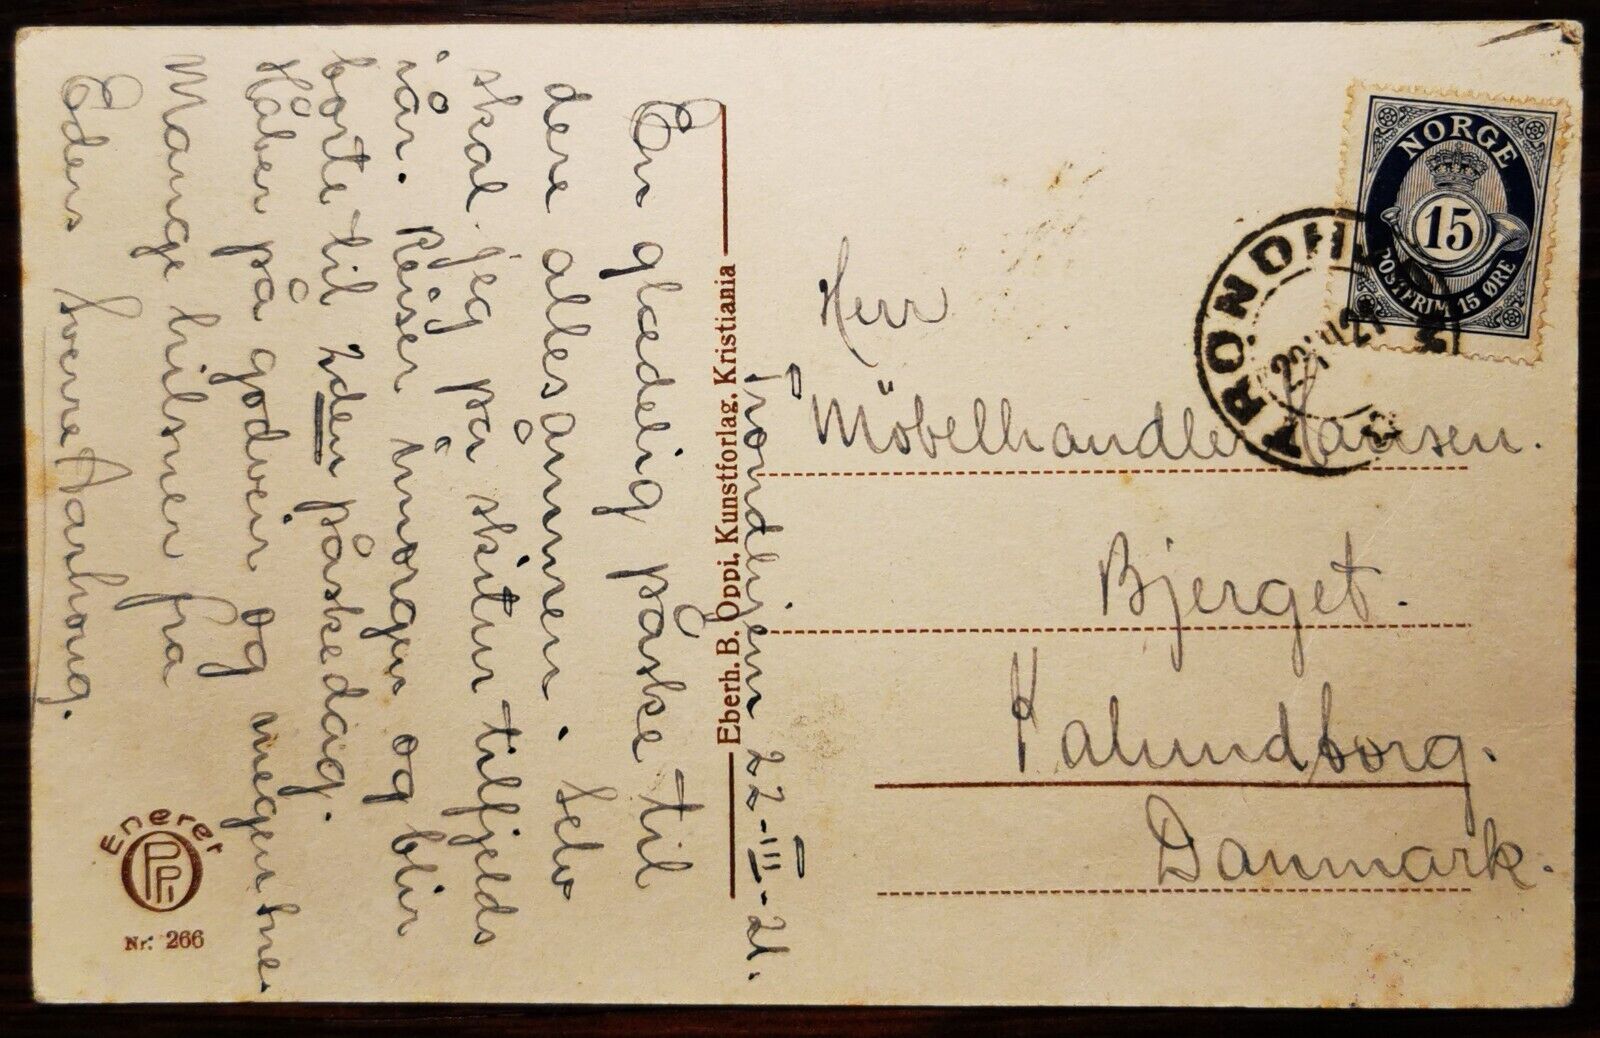 Trondhjem 22-III-21.
En glædelig påske til
dere allesammen. Selv
skal jeg på skitur tilfjelds
iår. Reiser imorgen og blir
borte til 2den påskedag.
Håber på godveir og megen sne.
Mange hilsner fra
Eders Sverre Aarhoug.
Eberh. B. Oppi, Kunstforlag, Kristiania
Enerer
OPPI
Nr: 266
NORGE
15
POSTFRIM. 15 ØRE
TRONDHJEM
22 III 21
Herr
Möbelhandler Hansen.
Bjerget.
Kalundborg.
Danmark.